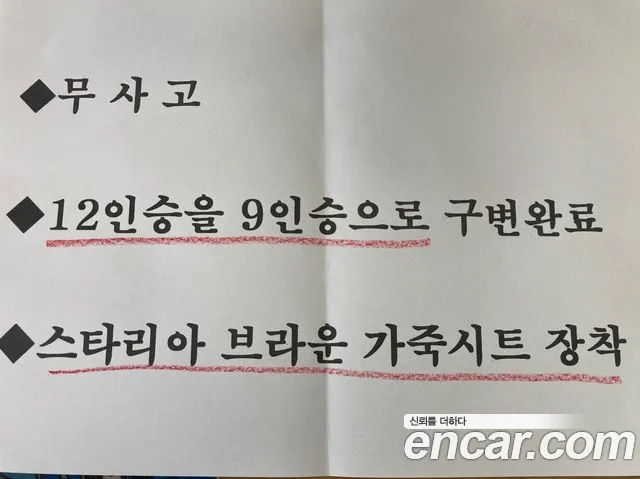 ◆무 사 고
◆12인승을 9인승으로 구변완료
◆스타리아 브라운 가죽시트 장착
신뢰를 더하다
encar.com